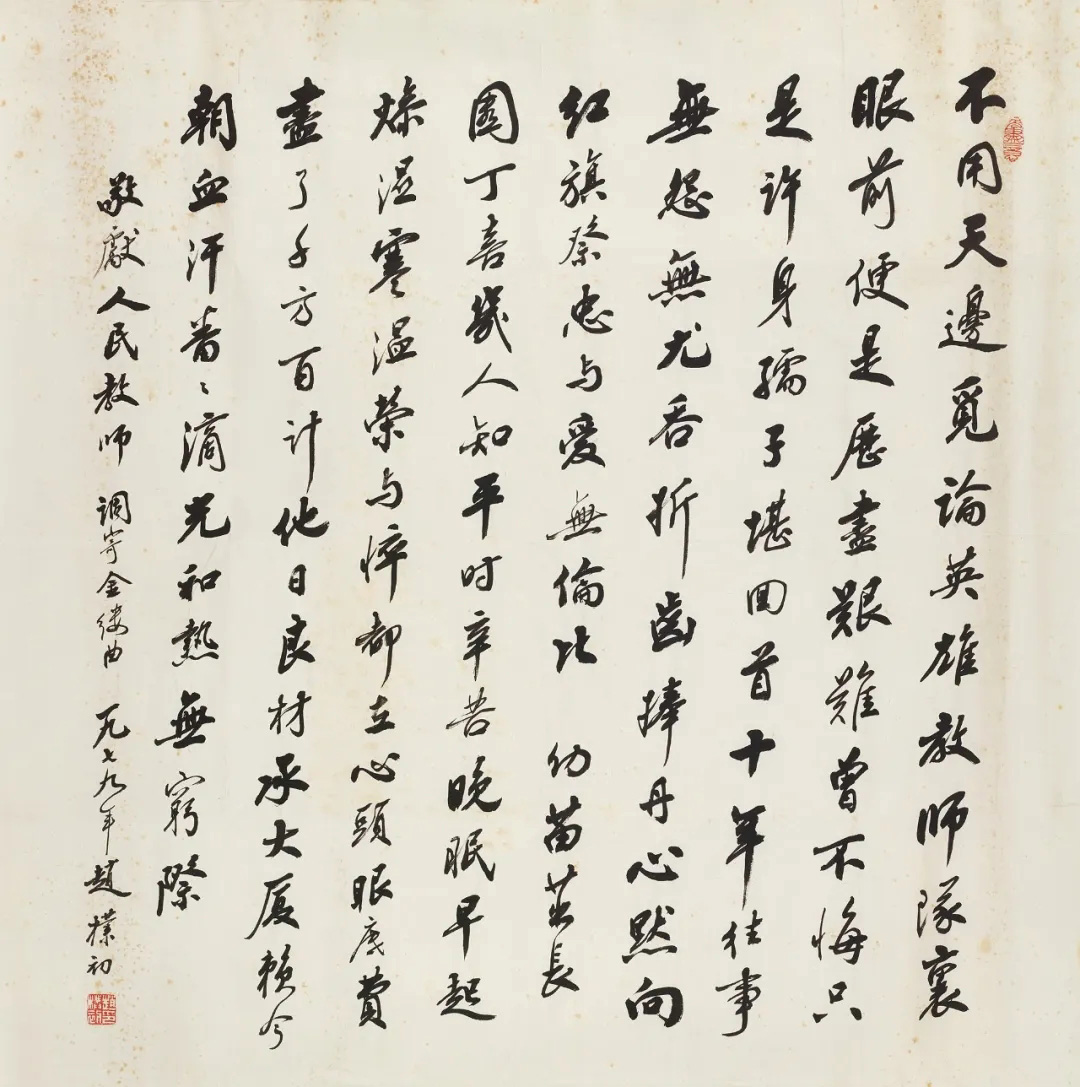 不用天邊覓論英雄教师隊裏
眼前便是歷盡艱難曾不悔只
是許身孺子堪回首十年往事
無怨無尤吞折齒捧丹心默向
红旗祭忠与愛無倫比 幼苗茁長
園丁喜幾人知平时辛苦晚眠早起
燥湿寒温榮与悴都在心頭眼底費
盡了千方百计他日良材承大厦赖今
朝血汗番〻滴光和熱無窮際
敬獻人民教师 调寄金缕曲 一九七九年 趙樸初